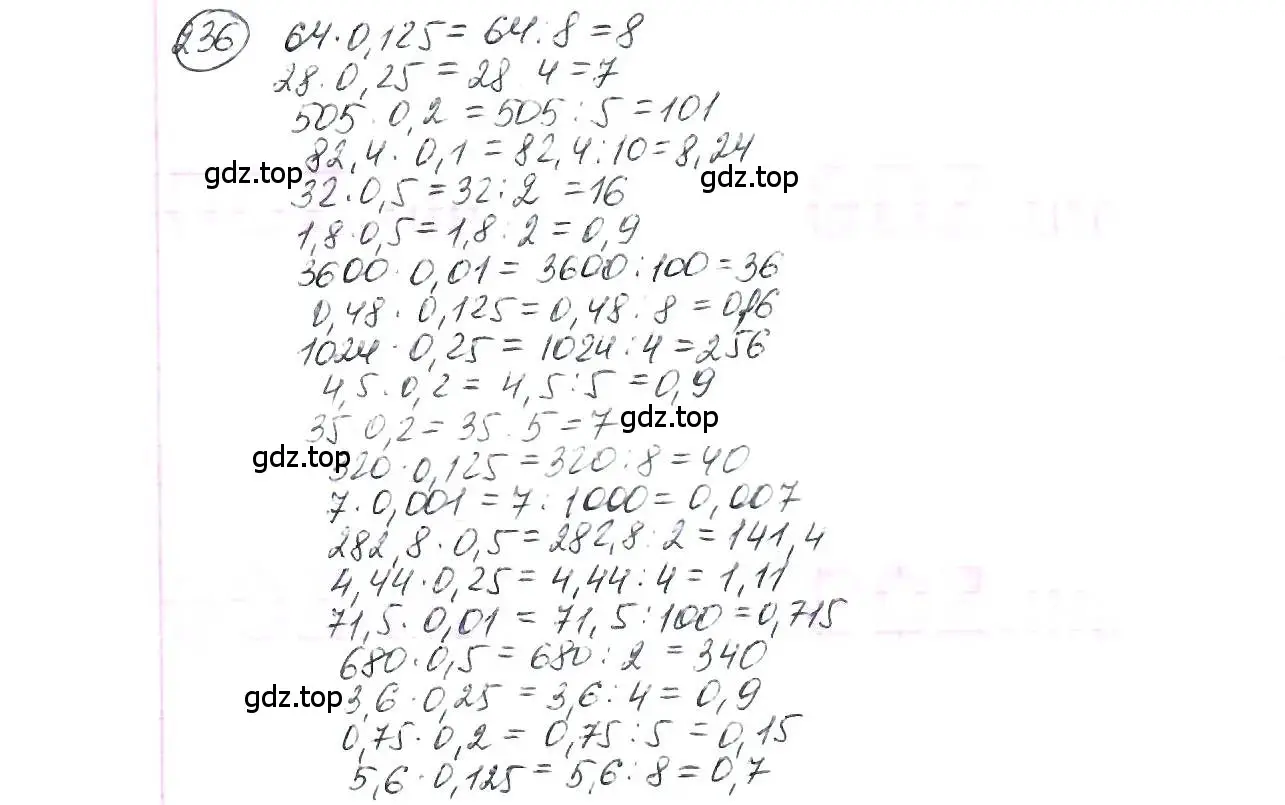 236 64·0,125 = 64:8 = 8
28·0,25 = 28 4 = 7
505·0,2 = 505:5 = 101
82,4·0,1 = 82,4:10 = 8,24
gdz.top gdz.top
32·0,5 = 32:2 = 16
1,8·0,5 = 1,8:2 = 0,9
3600·0,01 = 3600:100 = 36
0,48·0,125 = 0,48:8 =
1024·0,25 = 1024:4 = 256
4,5·0,2 = 4,5:5 = 0,9
35 0,2 = 35.5 = 7 gdz.top
gdz.top 320·0,125 = 320:8 = 40
7·0,001 = 7:1000 = 0,007
282,8·0,5 = 282,8:2 = 141,4
4,44·0,25 = 4,44:4 = 1,11
71,5·0,01 = 71,5:100 = 0,715
680·0,5 = 680:2 = 340
gdz.top 3,6·0,25 = 3,6:4 = 0,9
0,75·0,2 = 0,75:5 = 0,15
5,6·0,125 = 5,6:8 = 0,7